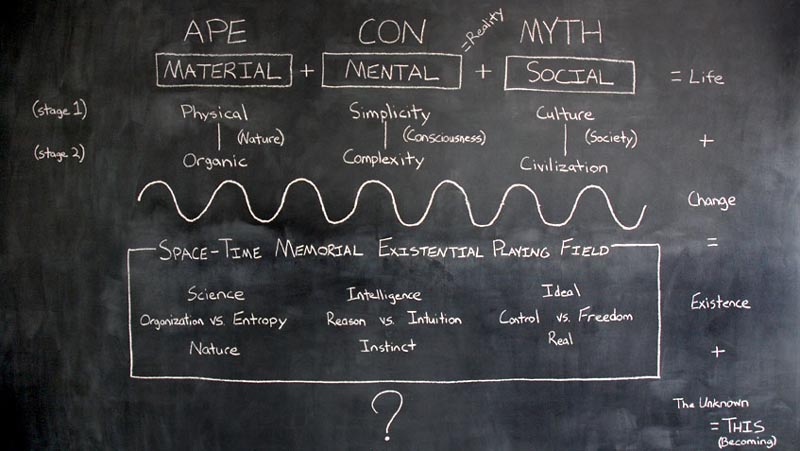 APE CON =Reality MYTH
MATERIAL + MENTAL + SOCIAL = Life
(stage 1) Physical Simplicity Culture
(Nature) (Consciousness) (Society) +
(stage 2) Organic Complexity Civilization
Change
SPACE-TIME MEMORIAL EXISTENTIAL PLAYING FIELD =
Science Intelligence Ideal
Existence
Organization vs. Entropy Reason vs. Intuition Control vs. Freedom
Real
Nature Instinct +
?
The Unknown
= THIS
(Becoming)